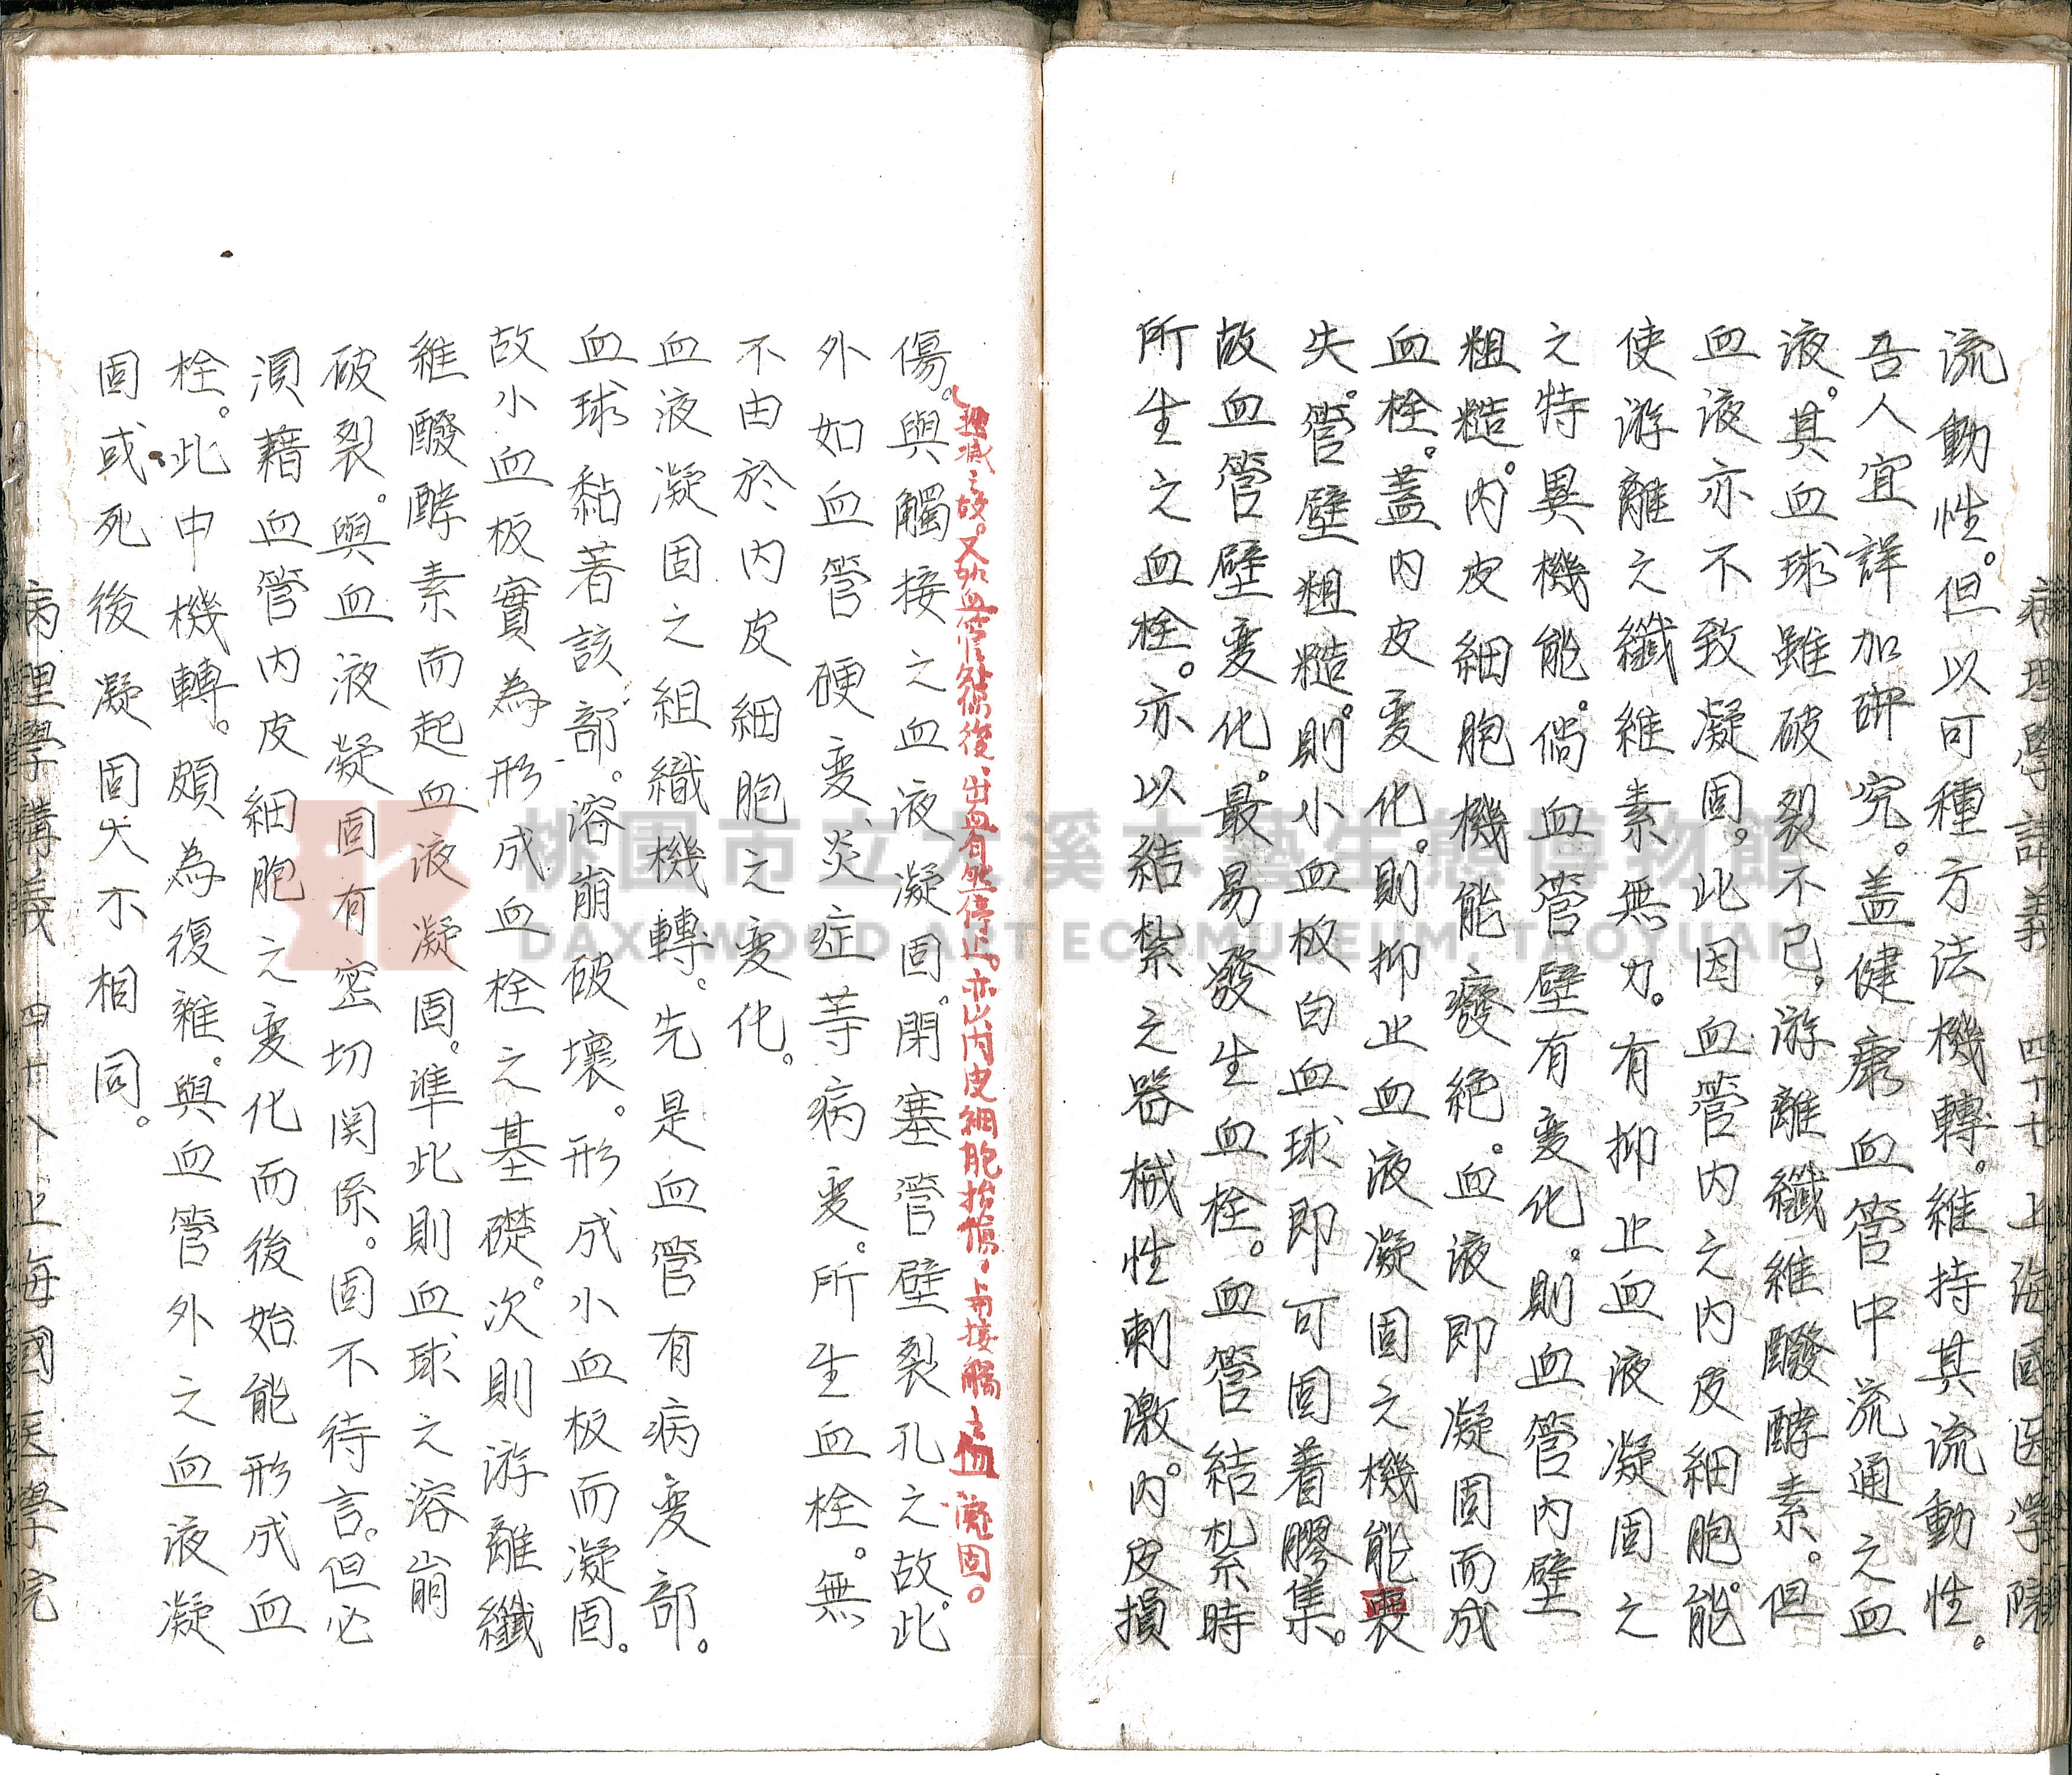 病理學講義 四十七 上海國医學院
流動性。但以可種方法機轉。維持其流動性。
吾人宜詳加研究。盖健康血管中流通之血
液。其血球雖破裂不已。游離纖維醱酵素。但
血液亦不致凝固。此因血管内之内皮細胞。能
使游離之纖維素無力。有抑止血液凝固之
之特異機能。倘血管壁有变化。則血管内壁
粗糙。内皮細胞機能廢絶。血液即凝固而成
血栓。蓋内皮变化。則抑止血液凝固之機能喪
失。管壁粗糙。則小血板白血球即可固着膠集。
故血管壁变化。最易發生血栓。血管結紮時
所生之血栓。亦以結紮之器械性刺激。内皮損
傷。與觸接之血液凝固。閉塞管壁裂孔之故。此
之故。又外血管損傷後、出血自然停止。亦以内皮細胞損傷。与接觸之血凝固。
外如血管硬变、炎症等病变。所生血栓。無
不由於内皮細胞之变化。
血液凝固之組織機轉。先是血管有病变部。
血球黏着該部。溶崩破壞。形成小血板而凝固。
故小血板實為形成血栓之基礎。次則游離纖
維醱酵素而起血液凝固。準此則血球之溶崩
破裂。與血液凝固有密切関係。固不待言。但必
須藉血管内皮細胞之变化而後始能形成血
栓。此中機轉。頗為復雜。與血管外之血液凝
固或死後凝固大不相同。
病理學講義 四十八 上海國医學院
桃園市立大溪木藝生態博物館
DAXI WOOD ART ECOMUSEUM, TAOYUAN